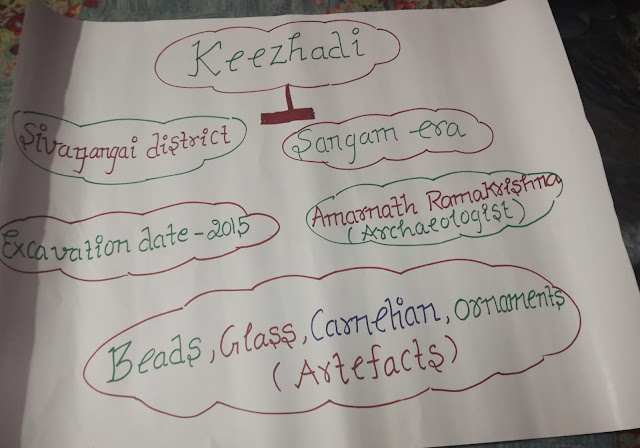 Keezhadi
Sivagangai district
Sangam-era
Excavation date-2015
Amarnath Ramakrishna
(Archaeologist)
Beads, Glass, Carnelian, Ornaments
(Artefacts)